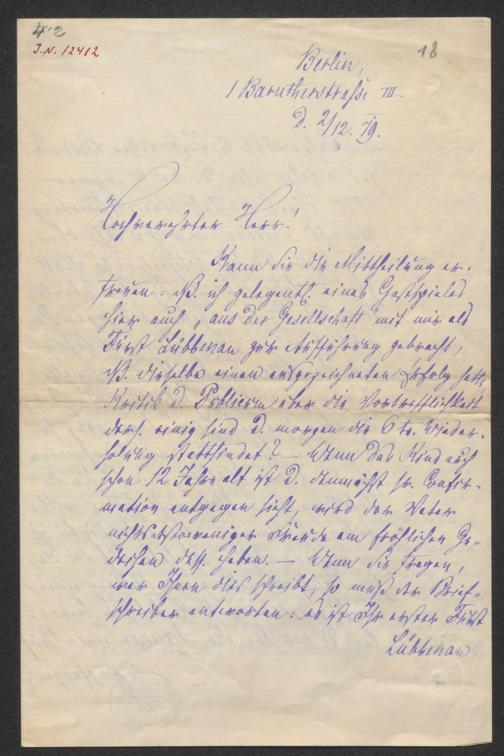 42
J.N. 12412
18
Berlin,
1 Barutherstraße III.
d. 2/12. 79.
Hochverehrter Herr!
Kann Sie die Mittheilung er-
freuen: dß. ich gelegentl. eines Gastspieles
hier auch „aus der Gesellschaft“ mit mir als
Fürst Lübbenau zur Aufführung gebracht,
dß. dieselbe einen ausgezeichneten Erfolg hatte,
Kritik u. Publicum über die Vortrefflichkeit
ders. einig sind u. morgen die 6te Wieder-
holung stattfindet? — Wenn das Kind auch
schon 12 Jahre alt ist u. demnächst sr. Confir-
mation entgegen sieht, wird der Vater
nichtsdestoweniger Freude am fröhlichen Ge-
deihen dess. haben. — Wenn Sie fragen,
wer Ihnen dies schreibt, so muß der Brief-
schreiber antworten: es ist Ihr erster Fürst
Lübbenau